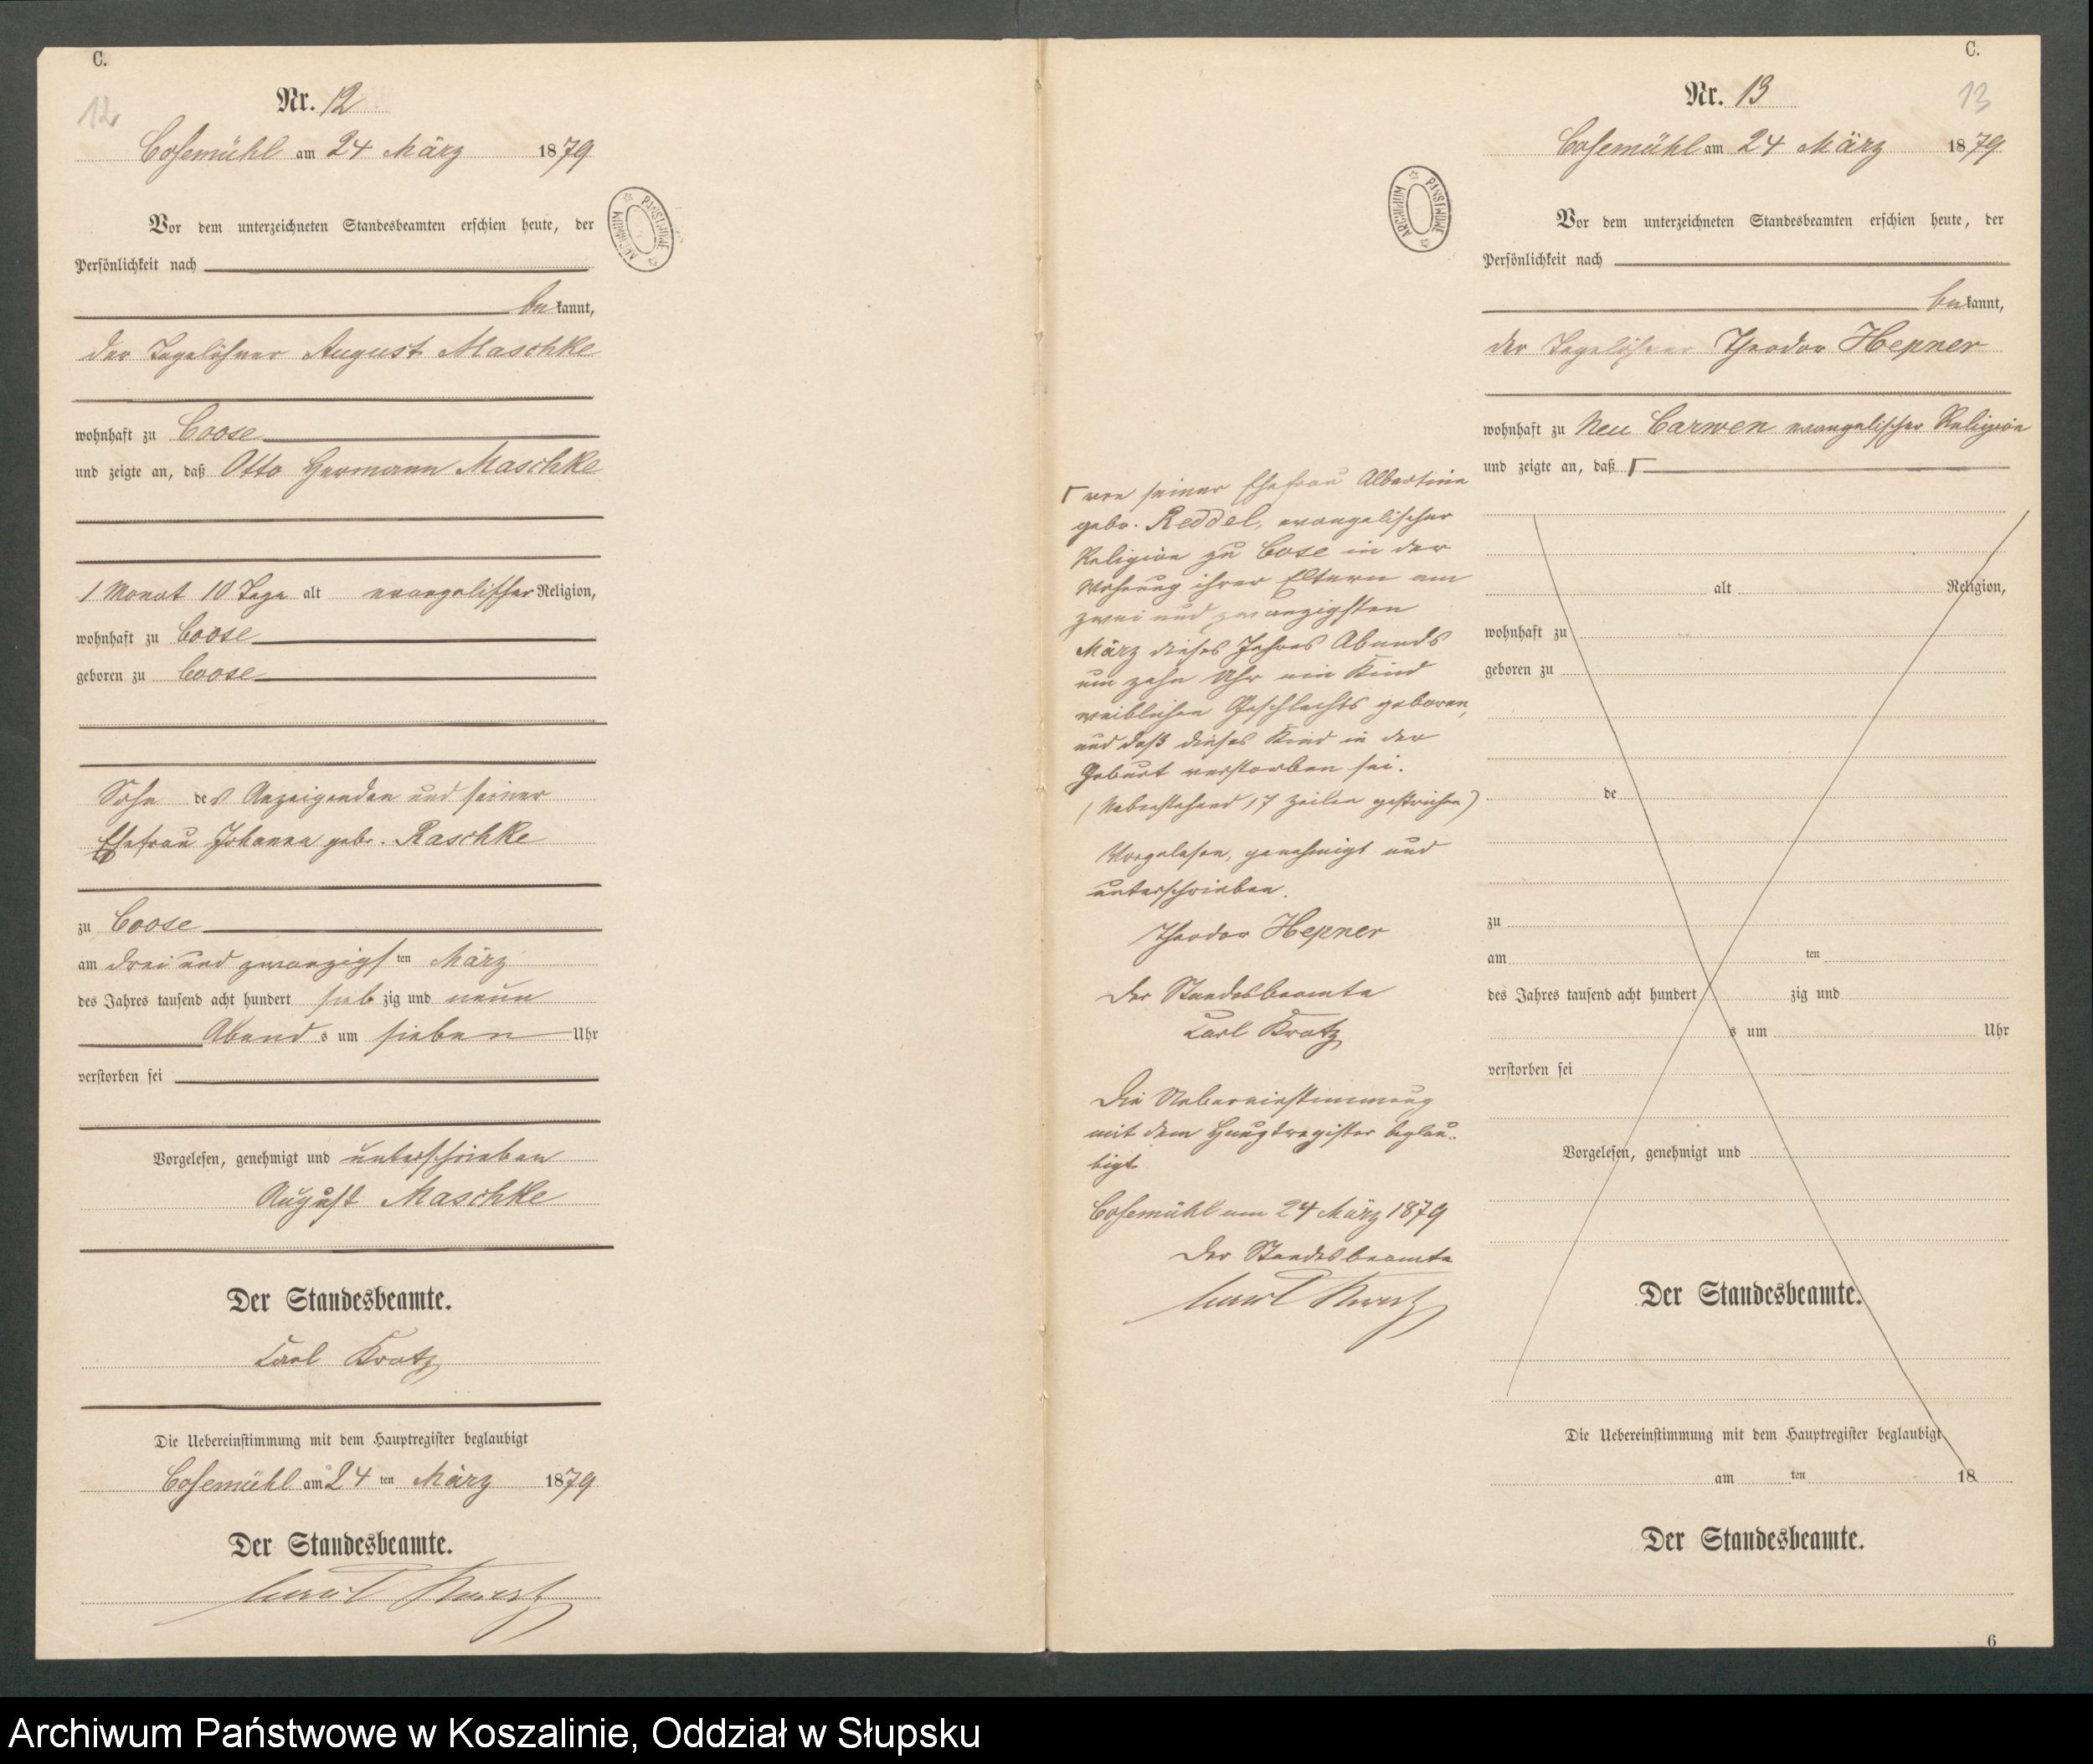 C.
12
Nr. 12
Cosemühl am 24 März 1879
Vor dem unterzeichneten Standesbeamten erschien heute, der
Persönlichkeit nach
bekannt,
der Tagelöhner August Maschke
wohnhaft zu Coose
und zeigte an, daß Otto Hermann Maschke
1 Monat 10 Tage alt evangelischer Religion,
wohnhaft zu Coose
geboren zu Coose
Sohn des Anzeigenden und seiner
Ehefrau Johanna geb. Raschke
zu Coose
am drei und zwanzigsten März
des Jahres tausend acht hundert siebzig und neun
Abends um sieben Uhr
verstorben sei
Vorgelesen, genehmigt und unterschrieben
August Maschke
Der Standesbeamte.
Carl Kratz
Die Uebereinstimmung mit dem Hauptregister beglaubigt
Cosemühl am 24 ten März 1879
Der Standesbeamte.
Carl Kratz
ARCHIWUM PAŃSTWOWE
C.
13
Nr. 13
Cosemühl am 24 März 1879
ARCHIWUM PAŃSTWOWE
Vor dem unterzeichneten Standesbeamten erschien heute, der
Persönlichkeit nach
bekannt,
der Tagelöhner Theodor Hepner
wohnhaft zu Neu Carwen evangelischer Religion
und zeigte an, daß Γ
Γ von seiner Ehefrau Albertine
gebr. Reddel, evangelischer
Religion zu Cose in der
Wohnung ihrer Eltern am
zwei und zwanzigsten
März dieses Jahres Abends
um zehn Uhr ein Kind
weiblichen Geschlechts geboren,
und daß dieses Kind in der
Geburt verstorben sei.
(Nebenstehend 17 Zeilen gestrichen)
Vorgelesen, genehmigt und
unterschrieben.
Theodor Hepner
Der Standesbeamte
Carl Kratz
Die Uebereinstimmung
mit dem Hauptregister beglau-
bigt
Cosemühl am 24 März 1879
Der Standesbeamte
Carl Kratz
alt Religion,
wohnhaft zu
geboren zu
de
zu
am ten
des Jahres tausend acht hundert zig und
s um Uhr
verstorben sei
Vorgelesen, genehmigt und
Der Standesbeamte.
Die Uebereinstimmung mit dem Hauptregister beglaubigt
am ten 18
Der Standesbeamte.
6
Archiwum Państwowe w Koszalinie, Oddział w Słupsku